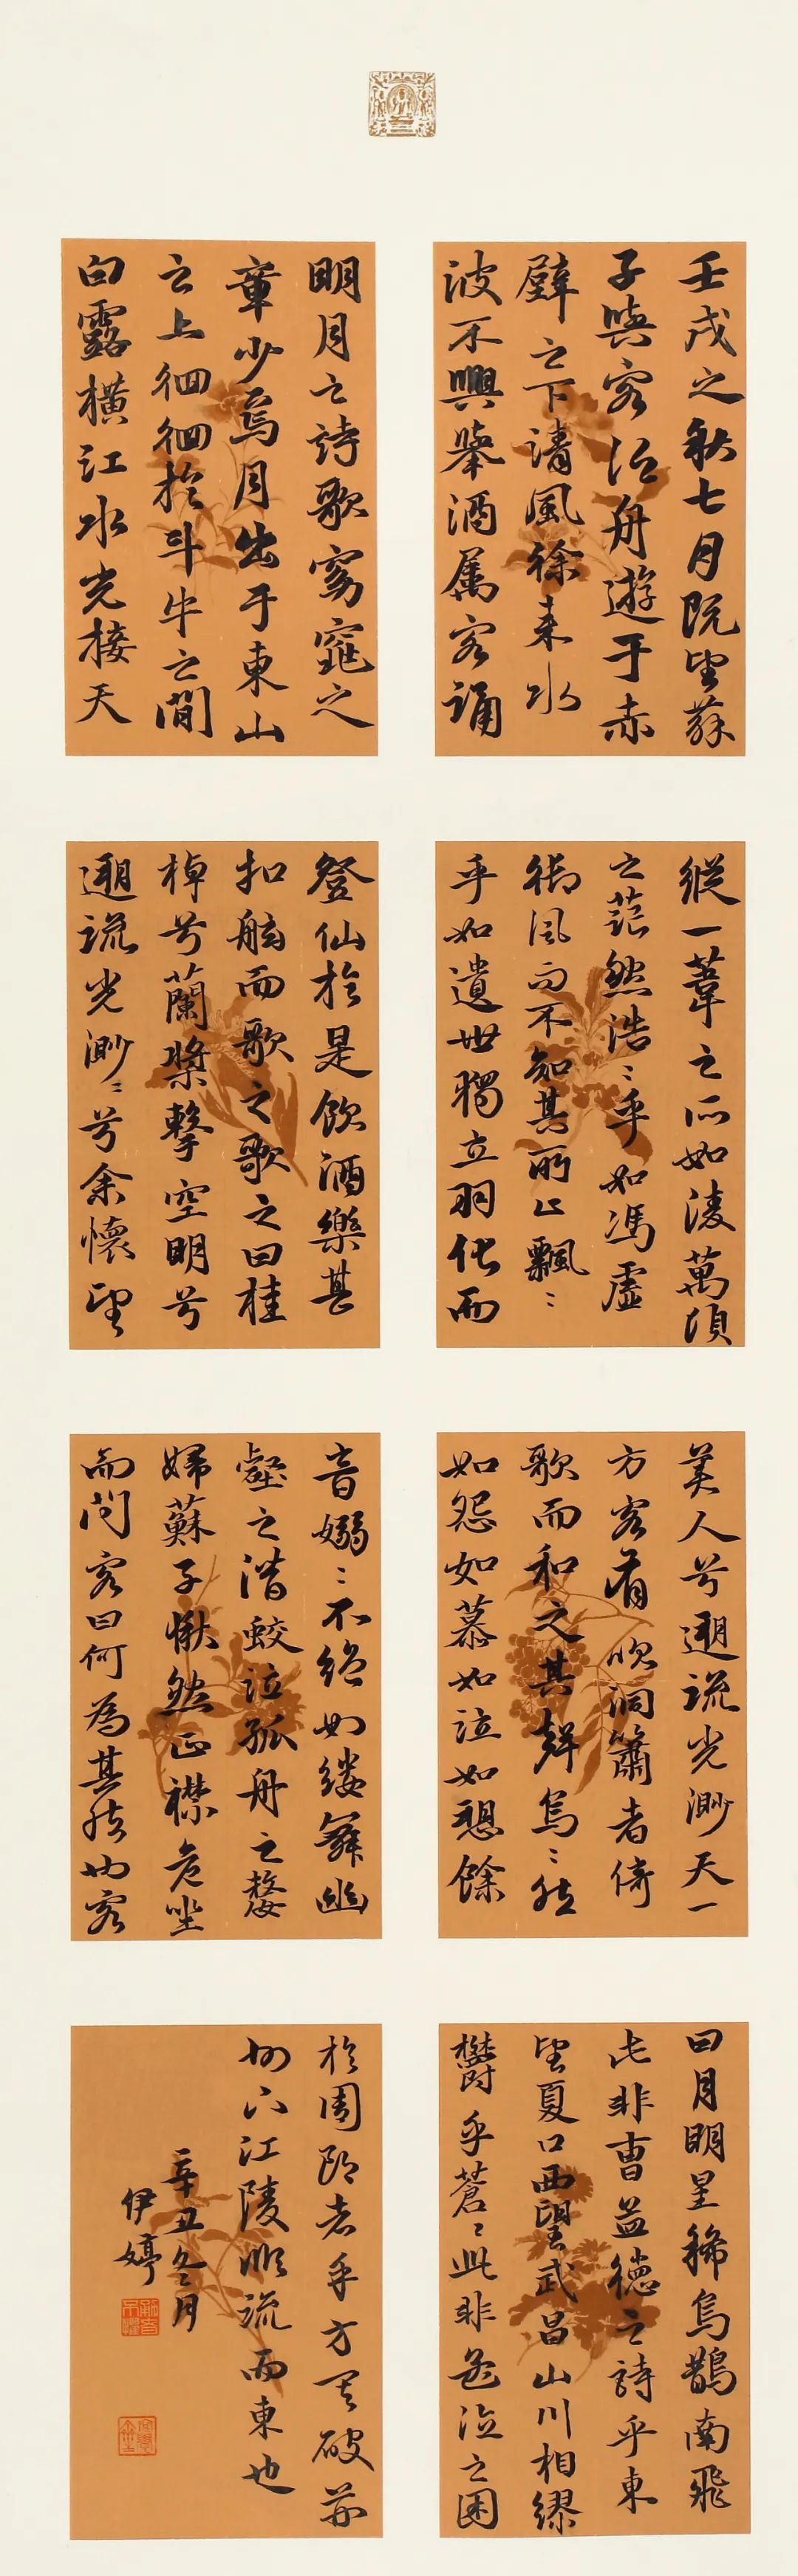 壬戌之秋七月既望蘇
子與客泛舟遊于赤
壁之下清風徐來水
波不興舉酒属客誦
明月之詩歌窈窕之
章少焉月出于東山
之上徊徊於斗牛之間
白露橫江水光接天
縱一葦之所如淩萬頃
之茫然浩〻乎如馮虛
御風而不知其所止飄〻
乎如遺世獨立羽化而
登仙於是飲酒樂甚
扣舷而歌之歌之曰桂
棹兮蘭槳擊空明兮
遡流光渺〻兮余懷望
美人兮遡流光渺天一
方客有吹洞簫者倚
歌而和之其聲烏〻然
如怨如慕如泣如愬餘
音嫋〻不絕如縷舞幽
壑之潛蛟泣孤舟之嫠
婦蘇子愀然正襟危坐
而問客曰何為其然也客
曰月明星稀烏鵲南飛
此非曹孟德之詩乎東
望夏口西望武昌山川相繆
鬱乎蒼〻此非孟泣之困
於周郎者乎方其破荊
州下江陵順流而東也
辛丑冬月
伊婷